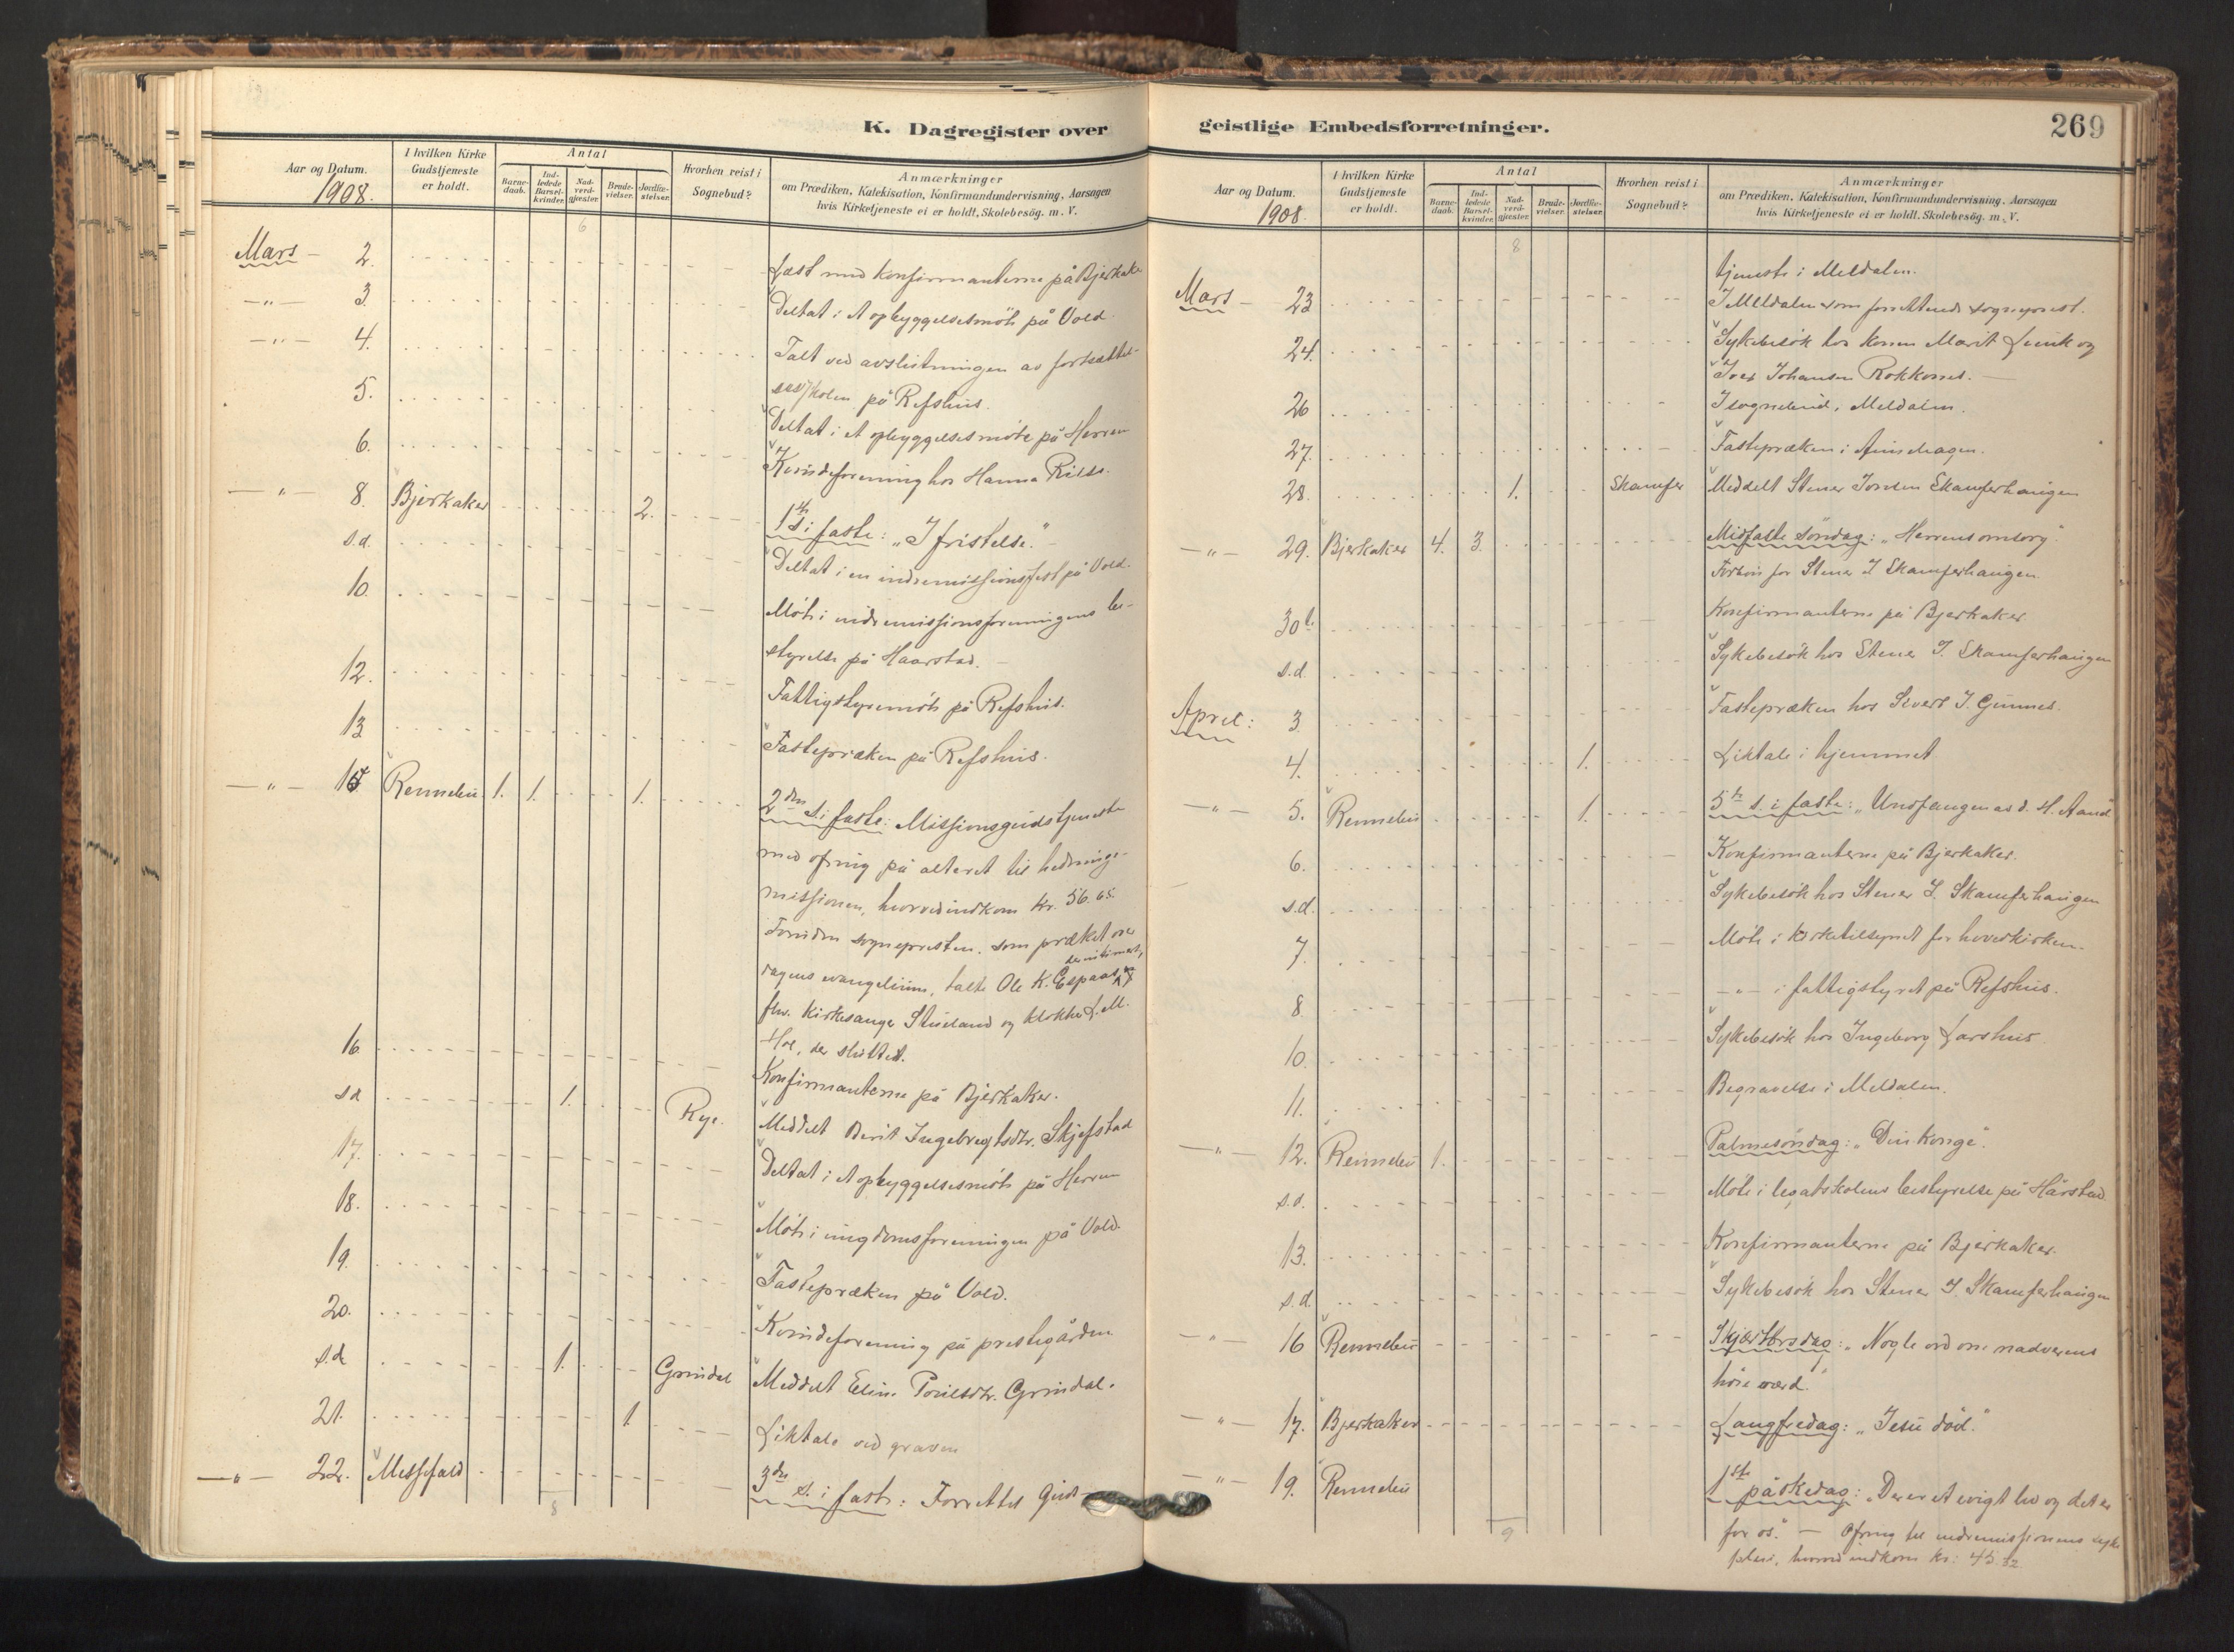 K. Dagregister over
Aar og Datum.
1908.
I hvilken Kirke Gudstjeneste er holdt.
Antal
Barne-daab.
Ind-ledede Barsel-kvinder.
Nad-verd-gjæster.
Brude-vielser.
Jordfæ-stelser.
Hvorhen reist i Sognebud?
Anmærkninger
om Prædiken, Katekisation, Konfirmandundervisning, Aarsagen
hvis Kirketjeneste ei er holdt, Skolebesög. m. V.
6
Mars - 2. Læst med konfirmanterne på Bjerkaker
-"- 3. Deltat i et opbyggelsesmöte på Vold.
-"- 4. Talt ved avslutningen av fortsættel-
sesskolen på Refshus.
5. Deltat i et opbyggelsesmöte på Herrem
6. Kvindeforening hos Hanna
-"- 8. Bjerkaker 2. 1ste s. i faste: "I fristelse."
s.d. Deltat i en indremissionsfest på Vold.
10. Möte i indremissionsforeningens be-
styrelse på Haarstad.
12. Fattigstyremöte på Refshus.
13 Fastepræken på Refshus.
-"- 15 Rennebu 1. 1. 1. 2den s. i faste: Missionsgudstjeneste
med ofring på alteret til hedninge-
missionen, hvorved indkom kr. 56.65.
Foruden sognepresten, som præket over
dagens evangelium, talte Ole K. Espaas,
fhv. kirkesanger Stueland og klokker L. M.
Hol, der sluttet.
16. Konfirmanterne på Bjerkaker.
sd 1. Rye. Meddelt Berit Ingebregtsdtr. Skjefstad
17. Deltat i et opbyggelsesmöte på Herrem
18. Möte i ungdomsforeningen på Vold.
19. Fastepræken på Vold.
20. Kvindeforening på prestegården
s.d. 1. Grindal Meddelt Eline Poulsdtr. Grindal.
21. 1. Liktale ved graven
-"- 22. Messefald 3die s. i faste: Forrettet Guds-
8
geistlige Embedsforretninger.
269
Aar og Datum.
1908.
I hvilken Kirke Gudstjeneste er holdt.
Antal
Barne-daab.
Ind-ledede Barsel-kvinder.
Nad-verd-gjæster.
Brude-vielser.
Jordfæ-stelser.
Hvorhen reist i Sognebud?
Anmærkninger
om Prædiken, Katekisation, Konfirmandundervisning, Aarsagen
hvis Kirketjeneste ei er holdt, Skolebesög. m. V.
8
tjeneste i Meldalen.
Mars - 23 I Meldalen som forrettende sogneprest.
24. Sykebesök hos konen Marit og
Iver Johansen Rokkones.
26 I sognebud, Meldalen.
27. Fastepræken i
28. 1. Skamfer Meddelt Stener Skamferhaugen
-"- 29. Bjerkaker 4. 3. Midfaste söndag: "Herrens omsorg".
Forbön for Stener J. Skamferhaugen.
30t. Konfirmanterne på Bjerkaker
s.d. Sykebesök hos Stener J. Skamferhaugen
April: 3 Fastepræken hos Sivert J. Gunnes.
4. 1. Liktale i hjemmet
-"- 5. Rennebu 1. 5te s. i faste: "Undfangen av d. H. Aand"
6. Konfirmanterne på Bjerkaker.
s.d. Sykebesök hos Stener J. Skamferhaugen
7. Möte i kirketilsynet for hovedkirken.
8. -"- i fattigstyret på Refshus.
10. Sykebesök hos Ingeborg Larshus
11. Begravelse i Meldalen.
-"- 12. Rennebu 1. Palmesöndag: "Din konge".
s.d. Möte i legatskolens bestyrelse på Hårstad
13. Konfirmanterne på Bjerkaker.
s.d. Sykebesök hos Stener J. Skamferhaugen
-"- 16 Rennebu Skjærtorsdag: "Nogle ord om nadverens
höie værd."
-"- 17. Bjerkaker Langfredag: "Jesu död."
-"- 19. Rennebu 1ste påskedag: "Der er et evigt liv og det er
for os." - Ofring til indremissionens syke
pleie, hvorved indkom kr: 45.32
9